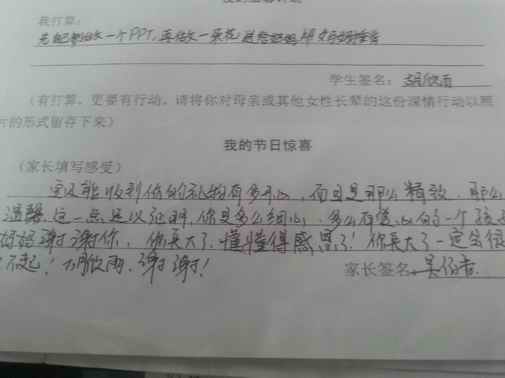 我打算：
先自己做一个PPT,再做一朵花送给妈妈
学生签名：胡欣雨
（有打算，更要有行动。请将你对母亲或其他女性长辈的这份深情行动以照
片的形式留存下来）
我的节日惊喜
（家长填写感受）
能收到你的礼物有多开心，而且是那么精致，那么
温馨，这一点足以证明，你是多么细心，多么有爱心的一个孩
妈妈谢谢你，你长大了，懂懂得感恩了！你长大了一定会很
不起！胡欣雨，谢谢！
家长签名